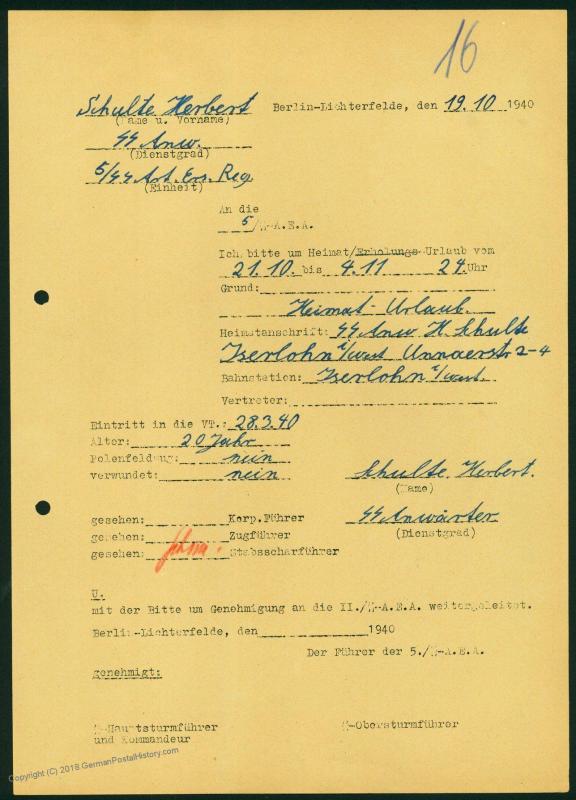 16
Schulte Herbert
(Name u. Vorname)
Berlin-Lichterfelde, den 19.10 1940
ᛋᛋ Anw.
(Dienstgrad)
5/ᛋᛋ Art. Ers. Reg.
(Einheit)
An die
5/ᛋᛋ-A.E.A.
Ich bitte um Heimat/Erholungs-Urlaub vom
21.10. bis 4.11 24 Uhr
Grund:
Heimat-Urlaub.
Heimatanschrift: ᛋᛋ Anw H. Schulte
Iserlohn i/west Unnaerstr 2-4
Bahnstation: Iserlohn i/west.
Vertreter:
Eintritt in die VT.: 28.3.40
Alter: 20 Jahr
Polenfeldzug: nein
verwundet: nein
Schulte Herbert.
(Name)
ᛋᛋ Anwärter
(Dienstgrad)
gesehen: Korp.Führer
gesehen: Zugführer
gesehen: Stabsscharführer
U.
mit der Bitte um Genehmigung an die II./ᛋᛋ-A.E.A. weitergeleitet.
Berlin-Lichterfelde, den 1940
Der Führer der 5./ᛋᛋ-A.E.A.
genehmigt:
ᛋᛋ-Hauptsturmführer
und Kommandeur
ᛋᛋ-Obersturmführer
Copyright (C) 2018 GermanPostalHistory.com